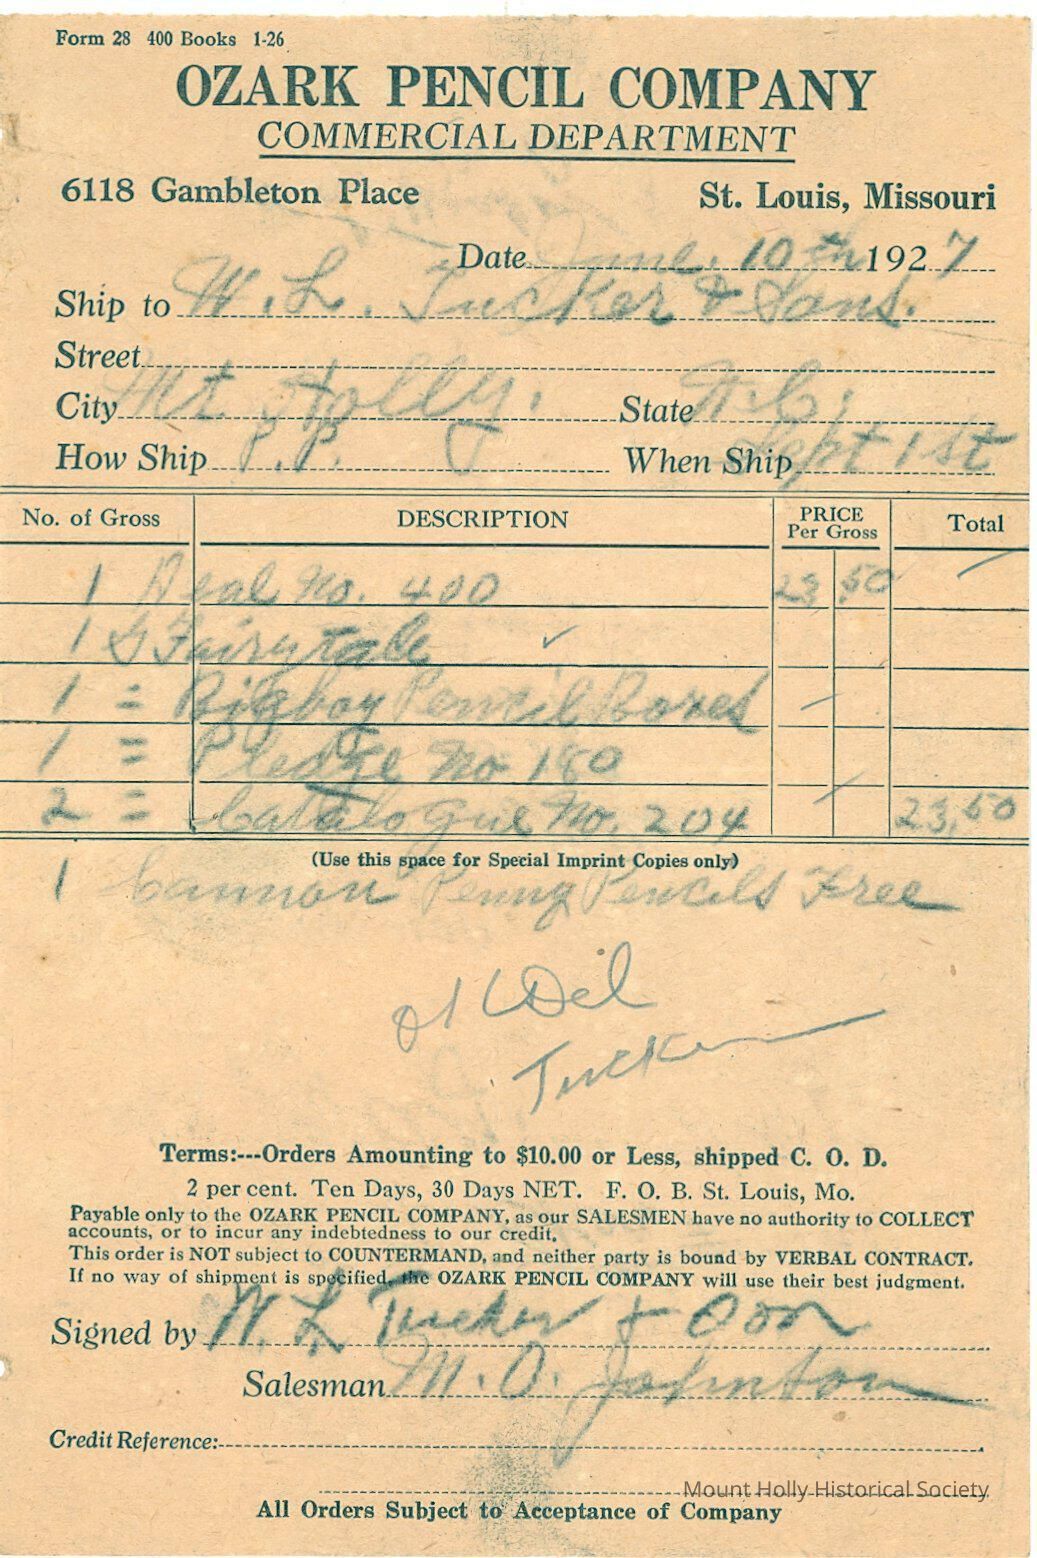 Form 28 400 Books 1-26
OZARK PENCIL COMPANY
COMMERCIAL DEPARTMENT
6118 Gambleton Place St. Louis, Missouri
Date June. 10th 1927
Ship to W. L. Tucker & Sons.
Street
City Mt Holly. State N.C.
How Ship P.P. When Ship Sept 1st
No. of Gross DESCRIPTION PRICE Per Gross Total
1 Deal No. 400 23.50
1 Fairytale
1 = Bigboy Pencil Boxes
1 = Pledge No 180
2 = Catalogue No. 204 23,50
(Use this space for Special Imprint Copies only)
1 Cannon Penny Pencils Free
Tucker
Terms:---Orders Amounting to $10.00 or Less, shipped C. O. D.
2 per cent. Ten Days, 30 Days NET. F. O. B. St. Louis, Mo.
Payable only to the OZARK PENCIL COMPANY, as our SALESMEN have no authority to COLLECT
accounts, or to incur any indebtedness to our credit.
This order is NOT subject to COUNTERMAND, and neither party is bound by VERBAL CONTRACT.
If no way of shipment is specified, the OZARK PENCIL COMPANY will use their best judgment.
Signed by W. L Tucker & Son
Salesman M. O. Johnton
Credit Reference:
Mount Holly Historical Society
All Orders Subject to Acceptance of Company